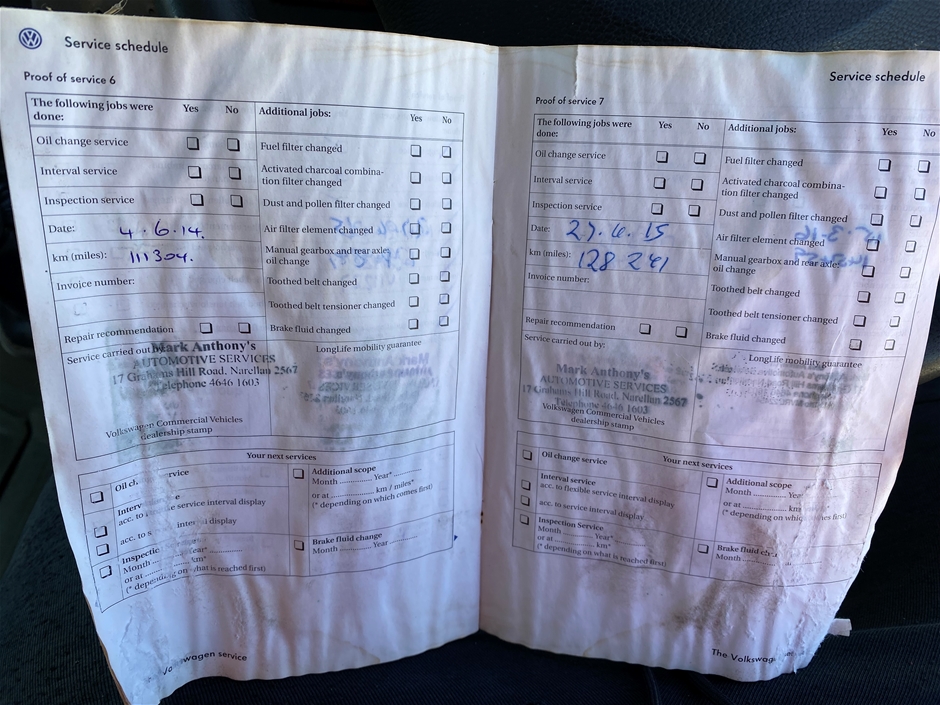 Service schedule
Proof of service 6
The following jobs were done: Yes No
Oil change service
Interval service
Inspection service
Date: 4.6.14.
km (miles): 111304.
Invoice number:
Repair recommendation
Service carried out
Mark Anthony's
AUTOMOTIVE SERVICES
17 Grahams Hill Road, Narellan 2567
Telephone 4646 1603
Volkswagen Commercial Vehicles
dealership stamp
Additional jobs: Yes No
Fuel filter changed
Activated charcoal combina-
tion filter changed
Dust and pollen filter changed
Air filter element changed
Manual gearbox and rear axle:
oil change
Toothed belt changed
Toothed belt tensioner changed
Brake fluid changed
LongLife mobility guarantee
Your next services
acc. to service interval display
acc. to s interval display
Month Year*
or at km*
(* depending on what is reached first)
Additional scope
Month Year*
or at km / miles*
(* depending on which comes first)
Brake fluid change
Month Year
service
Service schedule
Proof of service 7
The following jobs were done: Yes No
Oil change service
Interval service
Inspection service
Date:
km (miles): 128 241
Invoice number:
Repair recommendation
Service carried out by:
Mark Anthony's
AUTOMOTIVE SERVICES
17 Grahams Hill Road, Narellan 2567
Telephone 4646 1603
Volkswagen Commercial Vehicles
dealership stamp
Additional jobs: Yes No
Fuel filter changed
Activated charcoal combina-
tion filter changed
Dust and pollen filter changed
Air filter element changed
Manual gearbox and rear axle:
oil change
Toothed belt changed
Toothed belt tensioner changed
Brake fluid changed
LongLife mobility guarantee
Your next services
Oil change service
Interval service
acc. to flexible service interval display
acc. to service interval display
Inspection Service
Month Year*
or at km*
(* depending on what is reached first)
Additional scope
Month
or at
(* depending on which comes first)
Brake fluid
Month
The